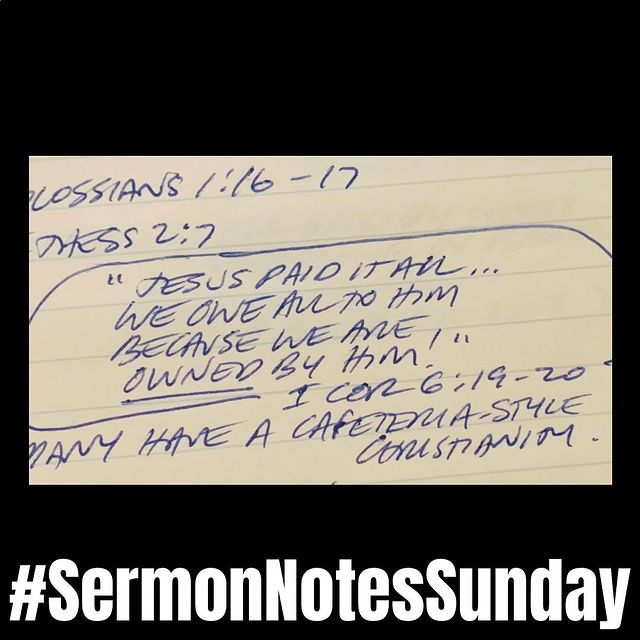 OLOSSIANS 1:16-17
THESS 2:7
" JESUS PAID IT ALL...
WE OWE ALL TO HIM
BECAUSE WE ARE
OWNED BY HIM! "
I COR 6:19-20
MANY HAVE A CAFETERIA-STYLE
CHRISTIANITY.
#SermonNotesSunday